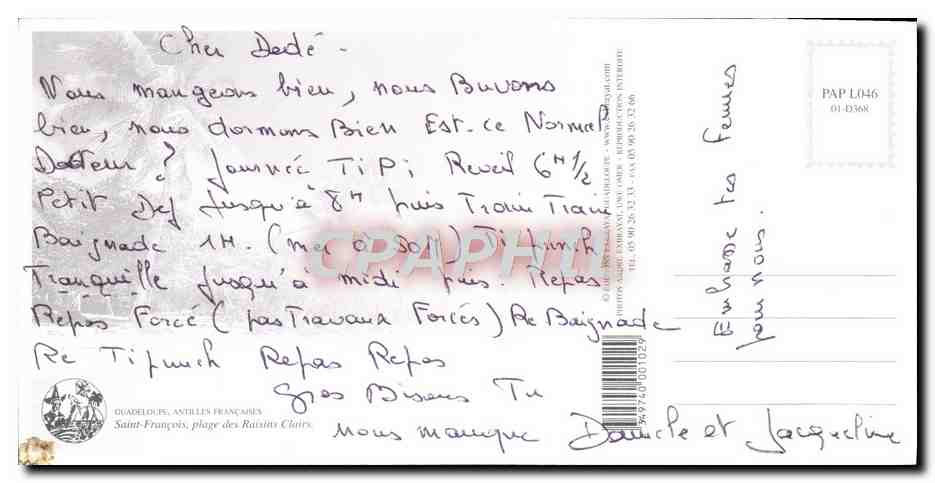 Cher Dedé -
Nous mangeons bien, nous Buvons
bien, nous dormons Bien Est-ce Normal
Docteur ? Journée TiPi Reveil 6H 1/2
Petit Dej Jusqu'à 8H puis Train Train
Baignade 1H. (mer à 30°) Ti Punch
Tranquille Jusqu'à midi puis. Repas
Repos Forcé (pas Travaux Forcés) Re Baignade
Re Ti punch Repas Repos
Gros Bisous Tu
nous manque Danièle et Jacqueline
Embrasse tes femmes
pour nous.
GUADELOUPE, ANTILLES FRANÇAISES
Saint-François, plage des Raisins Clairs.
PHOTOS ANDRÉ EXBRAYAT, UWE OMER - REPRODUCTION INTERDITE
TEL. 05 90 26 32 33 - FAX 05 90 26 32 66
3549740001029
PAP L046
01-D368
CPARHU